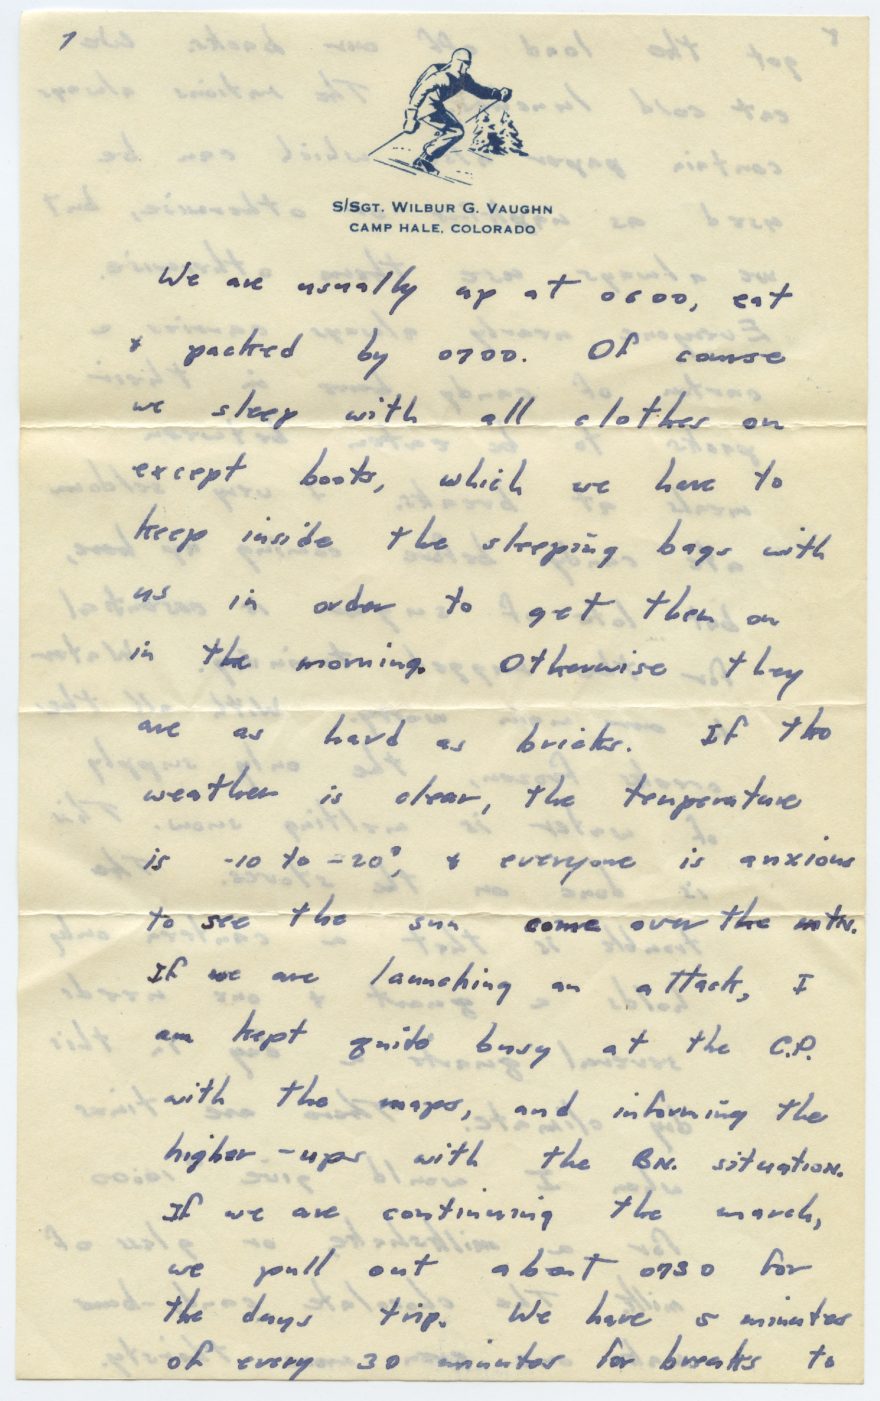 7
S/SGT. WILBUR G. VAUGHN
CAMP HALE, COLORADO
We are usually up at 0600, eat
& packed by 0700. Of course
we sleep with all clothes on
except boots, which we have to
keep inside the sleeping bags with
us in order to get them on
in the morning. Otherwise they
are as hard as bricks. If the
weather is clear, the temperature
is -10 to -20°, & everyone is anxious
to see the sun come over the mtn.
If we are launching an attack, I
am kept quite busy at the C.P.
with the maps, and informing the
higher-ups with the BN. situation.
If we are continuing the march,
we pull out about 0730 for
the days trip. We have 5 minutes
of every 30 minutes for breaks to